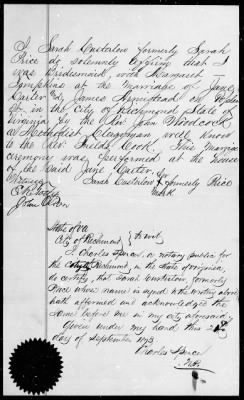 I Sarah Custalow formerly Sarah
Price do solemnly certify that I
was Bridesmaid, with Margaret
Tompkins at the Marriage of Jane
Carter & James Armistead on
in the City of Richmond State of
Virginia by the Rev John Woodcock
a Methodist Clergyman well know
to the Rev. Fields Cook. This Marriage
ceremony was performed at the house
of the said Jane Carter.
Witness Sarah Custalow formerly Price
mark
State of Va
City of Richmond } to wit;
I Charles Spence, a notary public for
the City Richmond, in the State of Virginia
do certify, that Sarah Custalow, formerly
Price whose name is signed to the writing above
hath affirmed and acknowledged the
same before me in my city aforesaid,
Given under my hand this
day of September 1873
Charles Spence